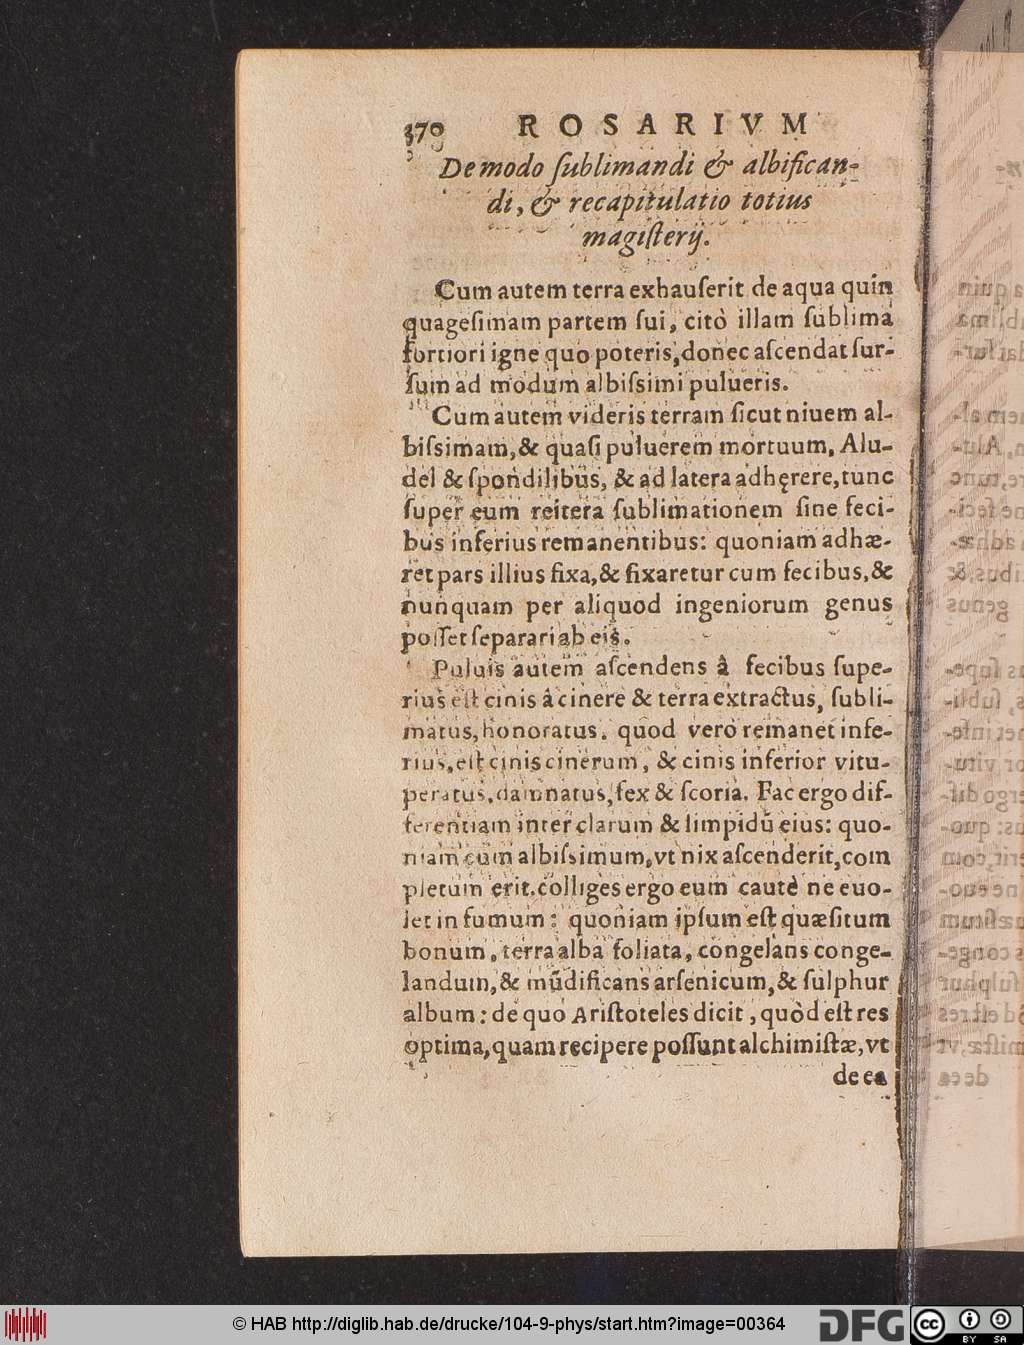 370 ROSARIVM
De modo ſublimandi & albifican-
di, & recapitulatio totius
magiſterij.
Cum autem terra exhauſerit de aqua quin
quageſimam partem ſui, citò illam ſublima
fortiori igne quo poteris, donec aſcendat ſur-
ſum ad modum albiſsimi pulueris.
Cum autem videris terram ſicut niuem al-
biſsimam, & quaſi puluerem mortuum, Alu-
del & ſpondilibus, & ad latera adhęrere, tunc
ſuper eum reitera ſublimationem ſine feci-
bus inferius remanentibus: quoniam adhæ-
ret pars illius fixa, & fixaretur cum fecibus, &
nunquam per aliquod ingeniorum genus
poſſet ſeparari ab eis.
Puluis autem aſcendens â fecibus ſupe-
rius eſt cinis â cinere & terra extractus, ſubli-
matus, honoratus. quod verò remanet infe-
rius, eſt cinis cinerum, & cinis inferior vitu-
peratus, damnatus, fex & ſcoria. Fac ergo dif-
ferentiam inter clarum & limpidū eius: quo-
niam cum albiſsimum, vt nix aſcenderit, com
pletum erit. colliges ergo eum cautè ne euo-
let in fumum: quoniam ipſum eſt quæſitum
bonum, terra alba foliata, congelans conge-
landum, & mūdificans arſenicum, & ſulphur
album: de quo Ariſtoteles dicit, quòd eſt res
optima, quam recipere poſſunt alchimiſtæ, vt
de ea
© HAB http://diglib.hab.de/drucke/104-9-phys/start.htm?image=00364
DFG
cc BY SA